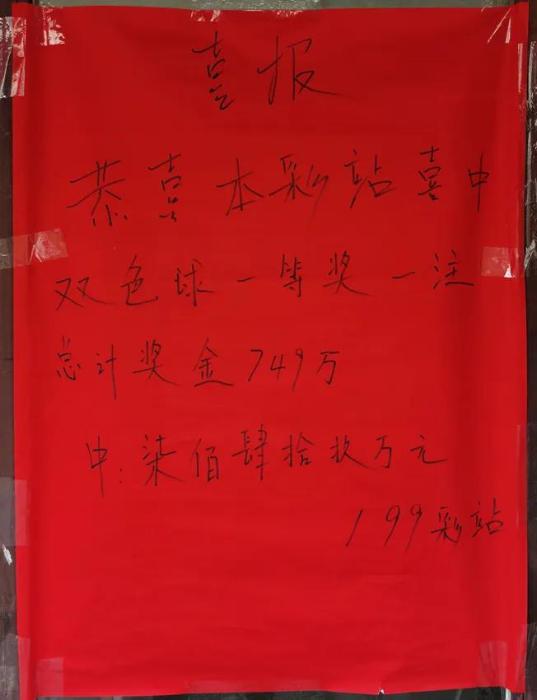 喜报
恭喜本彩站喜中
双色球一等奖一注
总计奖金749万
中:柒佰肆拾玖万元
199彩站